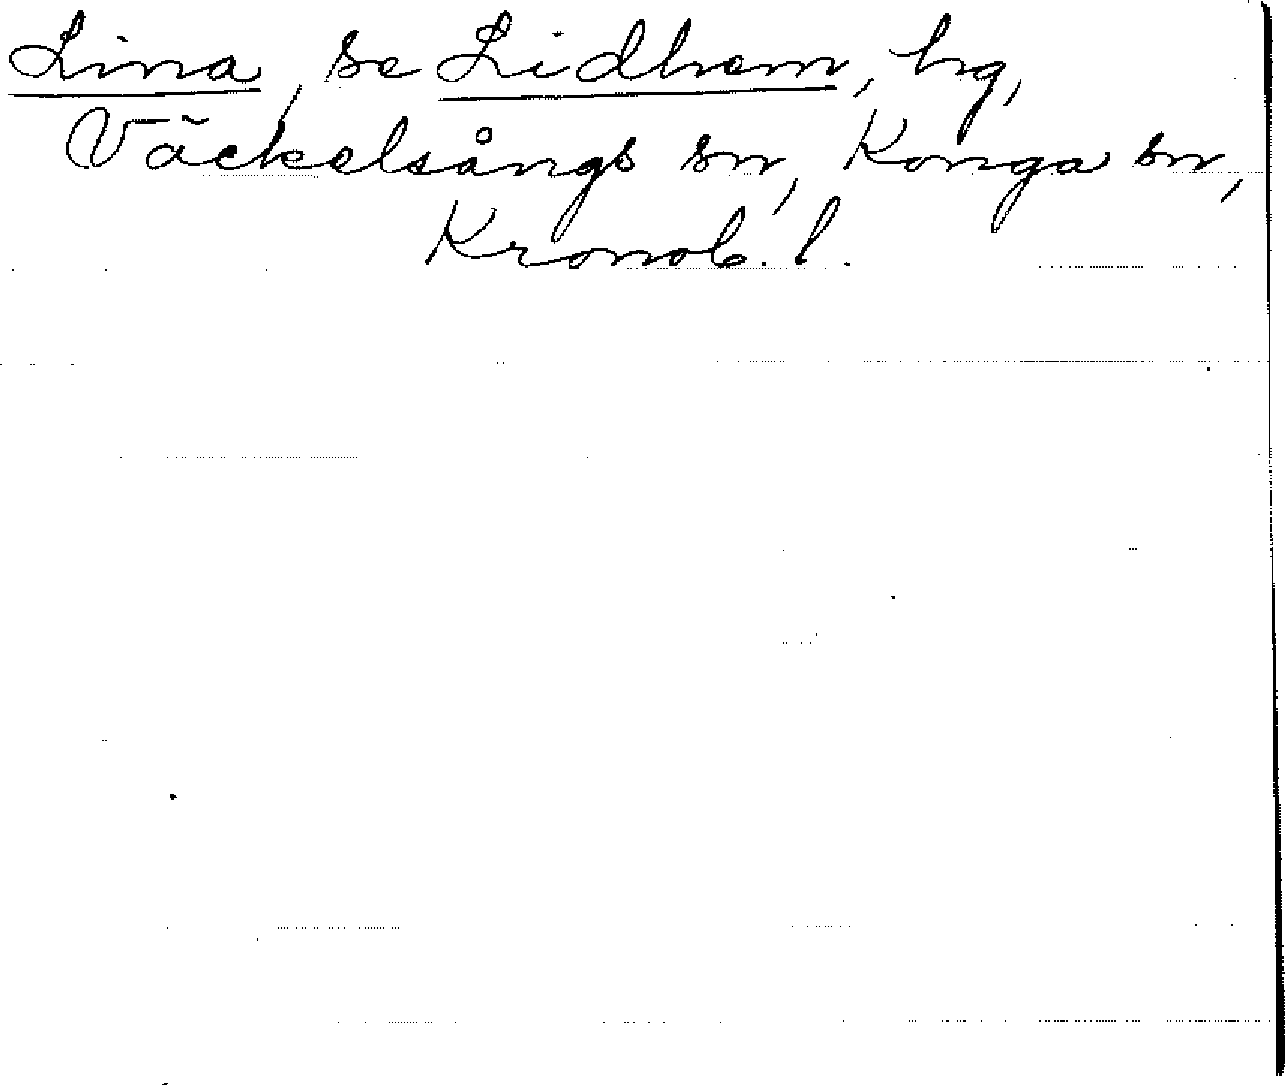 Lina, se Lidhem, hg,
Väckelsångs sn, Konga sn,
Kronob. l.